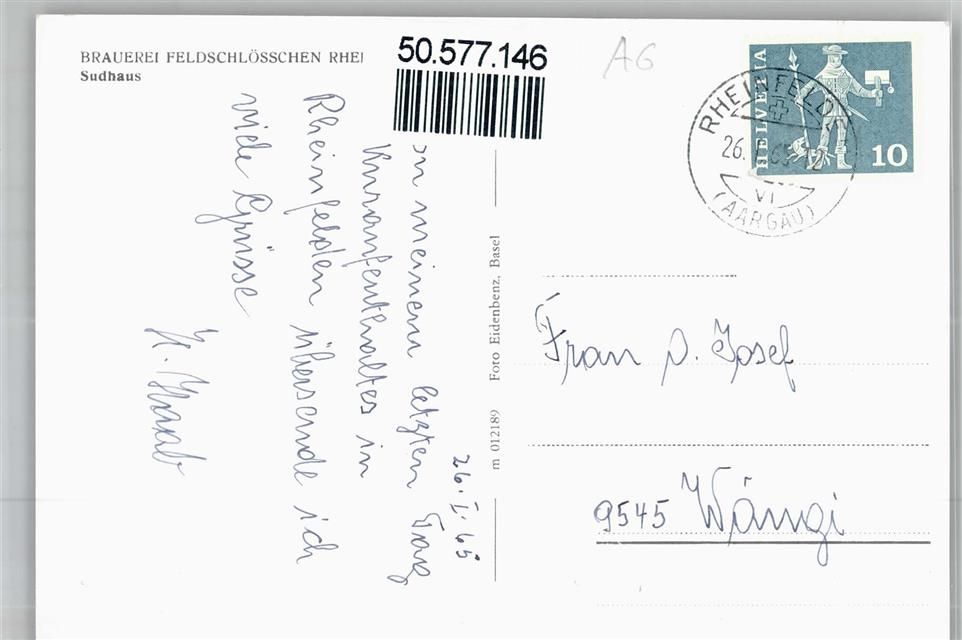 BRAUEREI FELDSCHLÖSSCHEN RHEI
Sudhaus
50.577.146
AG
HELVETIA
10
RHEINFELDEN
26. I. 65-12
VI
(AARGAU)
26. I. 65
An meinem letzten Tag
Kuraufenthaltes in
Rheinfelden übersende ich
viele Grüsse
H.
m 012189 Foto Eidenbenz, Basel
Frau D. Josef
9545 Wängi